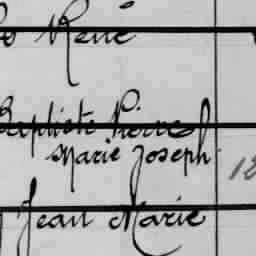 René
Baptiste Pierre
Marie Joseph
12
Jean Marie